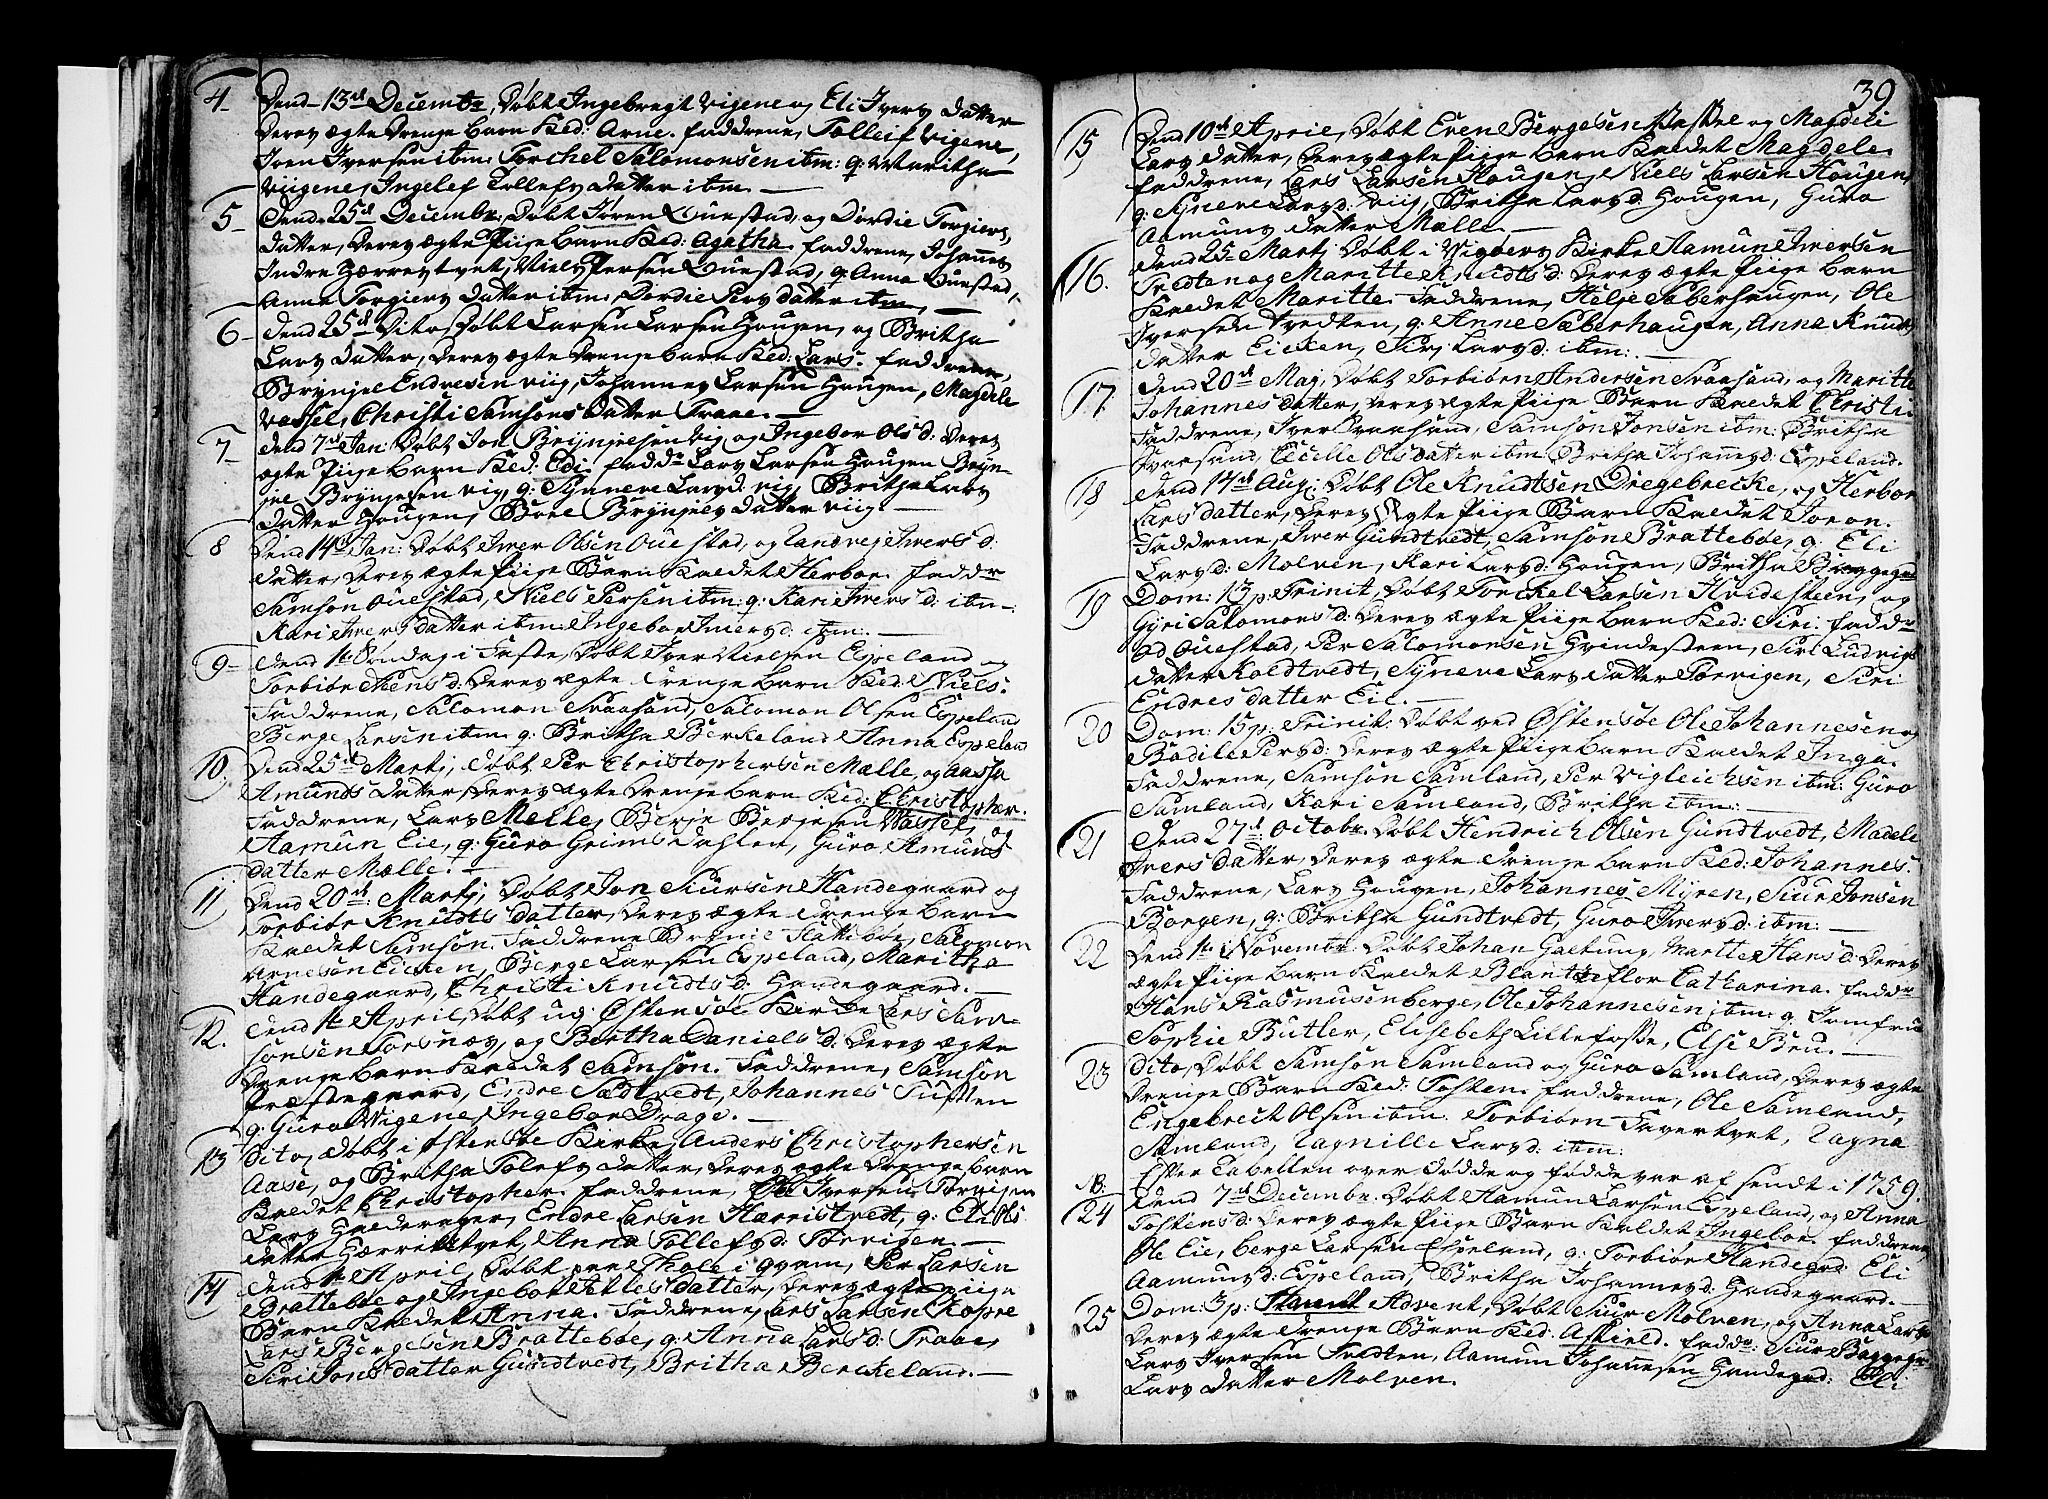 4. Dend 13de Decembr, Døbt Ingebregt Vigene og Eli Ivers datter
Deres ægte Drenge Barn Ked: Arne. faddrene, Tolleif Vigene,
Iven Iversen ibm: Torchel Salomonsen ibm: q: Maritha
Vigene, Ingelef Tollefs datter ibm. —
5 Dend 25de Decembr: Døbt Jøren Ouestad, og Dordie Torgiers
datter, Deres ægte Piige Barn Ked: Agatha. faddrene, Johannes
Indre Hærrestvet, Niels Persen Ouestad, q: Anna Ouestad,
Anne Torgiers datter ibm, Dordie Pers datter ibm, —
6 Dend 25de Dito Døbt Larsen Larsen Hougen, og Britha
Lars datter, Deres ægte Drenge barn Ked: Lars. faddrene,
Brynjel Endresen viig, Johannes Larsen Hougen, Magdele
Vassel, Christi Samsons datter Traae. —
7 Dend 7de Jan: Døbt Jon Brynjelsen vig, og Ingebor Ols d: Deres
ægte Piige barn Ked: Edi. faddr Lars Larsen Hougen Bryn-
jel Brynjelsen vig, q: Synneve Lars d: vig, Britha Lars
datter Hougen, Boel Brynjels datter viig. —
8 Dend 14de Jan: Døbt Iver Olsen Ouestad, og Randveg Ivers d:
datter, Deres ægte Piige Barn Kaldet Herbor. faddr
Samson Ouestad, Niels Persen ibm: q: Kari Ivers d: ibm:
Kari Ivers datter ibm: Ingebor Ivers d: ibm: —
9 Dend 1te Søndag i Faste, Døbt Iver Nielsen Espeland og
Torbiør Niels d: Deres ægte Drenge barn Ked: Niels.
Faddrene, Salomon Svaasand, Salomon Olsen Espeland
Berge Larsen ibm. q: Britha Berkeland Anna Espeland
10. Dend 25de Martj, Døbt Per Christophersen Mælle, og Aasa
Amunds datter, Deres ægte Drenge barn Ked: Christopher.
Faddrene, Lars Melle, Berje Berjesen Vassel, og
Aamun Eie, q: Guro Grimsdahlen, Guro Amuns
datter Mælle. —
11 Dend 20de: Martj, Døbt Jon Siursen Handegaard og
Torbiør Knudts datter, Deres ægte Drenge barn
Kaldet Samson. Faddrene Brynie Flattebøe, Salomon
Arnesen Eicken, Berge Larsen Espeland, Maritha
Handegaard, Christi Knudts d: Handegaard. —
12. Dend 1te April, Døbt ug: Østensøe Kirke Lars Sam-
sonsen Torsnæs, og Bertha Daniels d: Deres ægte
Drenge barn Kaldet Samson. Faddrene, Samson
Præstegaard, Endre Sædtvedt, Johannes Tufften
q: Guro Vigene, Ingebor Drage. —
13 Dito, Døbt i Østensøe Kirke, Anders Christophersen
Aase, og Britha Tolefs datter, Deres ægte Drenge barn
Kaldet Christopher. faddrene, Ole Iversen Torvigen
Lars Halderager, Endre Larsen Harristvedt, q: Eli Ols
datter Hærristvet, Anna Tollefs d: Torvigen. —
14 Dend 1te April, Døbt præ Thole i qvam, Per Larsen
Brattebøe og Ingebor Atles datter, Deres ægte Piige
Barn Kaldet Anna. Faddrene, Lars Larsen Kopre
Lars Bergesen Brattebøe, q: Anna Lars d: Traae,
Siri Jons datter Gundtvedt, Britha Berckeland. —
39
15 Dend 10de Aprie, Døbt Even Bergesen Vassel og Magdeli
Lars datter, Deres ægte Piige barn Kaldet Magdele.
faddrene, Lars Larsen Hougen, Niels Larsen Hougen,
q: Syneve Lars d: viig, Britha Lars d: Hougen, Guro
Aamuns datter Mælle. —
16. Dend 25de Martj Døbt i Vigøers Kirke Aamun Iversen
Tredten og Maritte Knudts d: Deres ægte Piige barn
Kaldet Maritte. Faddrene, Helje Saberhaugen, Ole
Iversen Tredten, q: Anne Sæberhaugen, Anna Knudts
datter Eicken, Siri Lars d: ibm: —
17 Dend 20de Maj, Døbt Torbiørn Andersen Svaasand, og Maritte
Johannes datter, Deres ægte Piige Barn Kaldet Christi.
Faddrene, Iver Svaasand, Samson Jonsen ibm: Britha
Svaasand, Cecelle Ols datter ibm Britha Johannes d: Espeland.
18 Dend 14de Aug: Døbt Ole Knudtsen Dregebrecke, og Herbor
Lars datter, Deres Ægte Piige Barn Kaldet Joron.
Faddrene, Iver Gundtvedt, Samson Brattebøe, q: Eli
Lars d: Molven, Kari Lars d: Hougen, Britha Baggegrd
19 Dom: 13 p: Trinit, Døbt Torckel Larsen Hvidesteen, og
Gyri Salomons d: Deres ægte Piige barn Ked: Siri. faddr
Od Ouestad, Per Salomonsen Hvindesteen, Siri Ludvigs
datter Koldtvedt, Syneve Lars datter Torvigen, Siri
Endres datter Eie. —
20 Dom: 15 p: Trinit: Døbt ved Østensøe Ole Johannesen og
Badille Pers d: Deres ægte Piige barn Kaldet Inga.
Faddrene, Samson Samland, Per Vigleichsen ibm: Guro
Samland, Kari Samland, Britha ibm: —
21 Dend 27de: Octobr. Døbt Hendrich Olsen Gundtvedt, Madele
Ivers datter, Deres ægte Drenge barn Ked: Johannes.
Faddrene, Lars Hougen, Johannes Myren, Siur Jonsen
Borgen, q: Britha Gundtvedt, Guro Ivers d: ibm: —
22 Dend 1te Novembr Døbt Johan Galtung, Martte Hans d: Deres
ægte Piige barn Kaldet Blantzeflor Catharina. faddr
Hans Rasmusen berge, Ole Johannesen ibm: q: Jomfru
Sophie Butler, Elisebeth Lillefosse, Else Beu. —
23 Dito, Døbt Samson Samland og Guro Samland, Deres ægte
Drenge Barn Ked: Tosten. faddrene, Ole Samland,
Engebrect Olsen ibm. Torbiørn Tavertvet, Ragna
Samland, Ragnille Lars d: ibm:
NB: Efter Tabellen over dødde og fødde var af sendt i 1759.
24 Dend 7de Decembr. Døbt Aamun Larsen Espeland, og Anna
Tostens d: Deres ægte Piige Barn Kaldet Ingebor. faddrene,
Ole Eie, Berge Larsen Espeland, q: Torbiør Handegrd Eli
Aamuns d: Espeland, Britha Johannes d: Handegaard. —
25 Dom: 3 p: Advent, Døbt Siur Molven, og Anna Lars d
Deres ægte Drenge Barn Ked: Askield. faddr: Siur Baggegr
Lars Iversen Tredten, Aamun Johannesen Handegrd: Eli
Lars datter Molven.